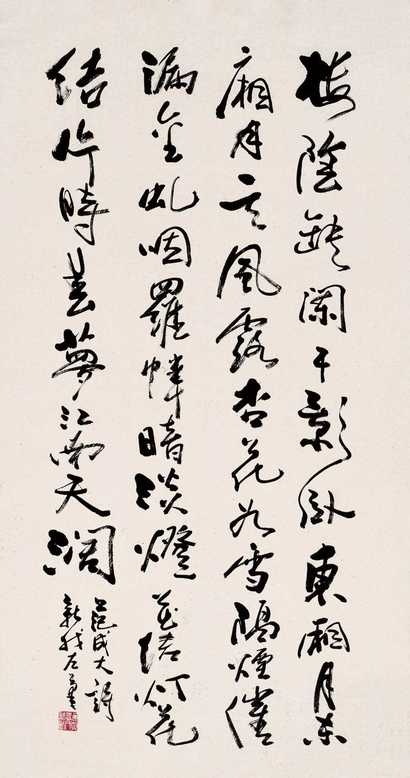 樓陰缺闌干影卧東廂月東
廂月一天風露杏花如雪隔煙催
漏金虬咽羅幃暗淡燈花結灯花
結片時春夢江南天闊
范成大詞
新我左筆